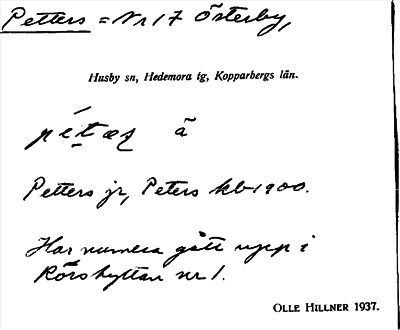 Petters = Nr 17 Österby,
Husby sn, Hedemora tg, Kopparbergs län.
pétæs å
Petters jr, Peters kb 1900.
Har numera gått upp i
Rörshyttan nr 1.
OLLE HILLNER 1937.